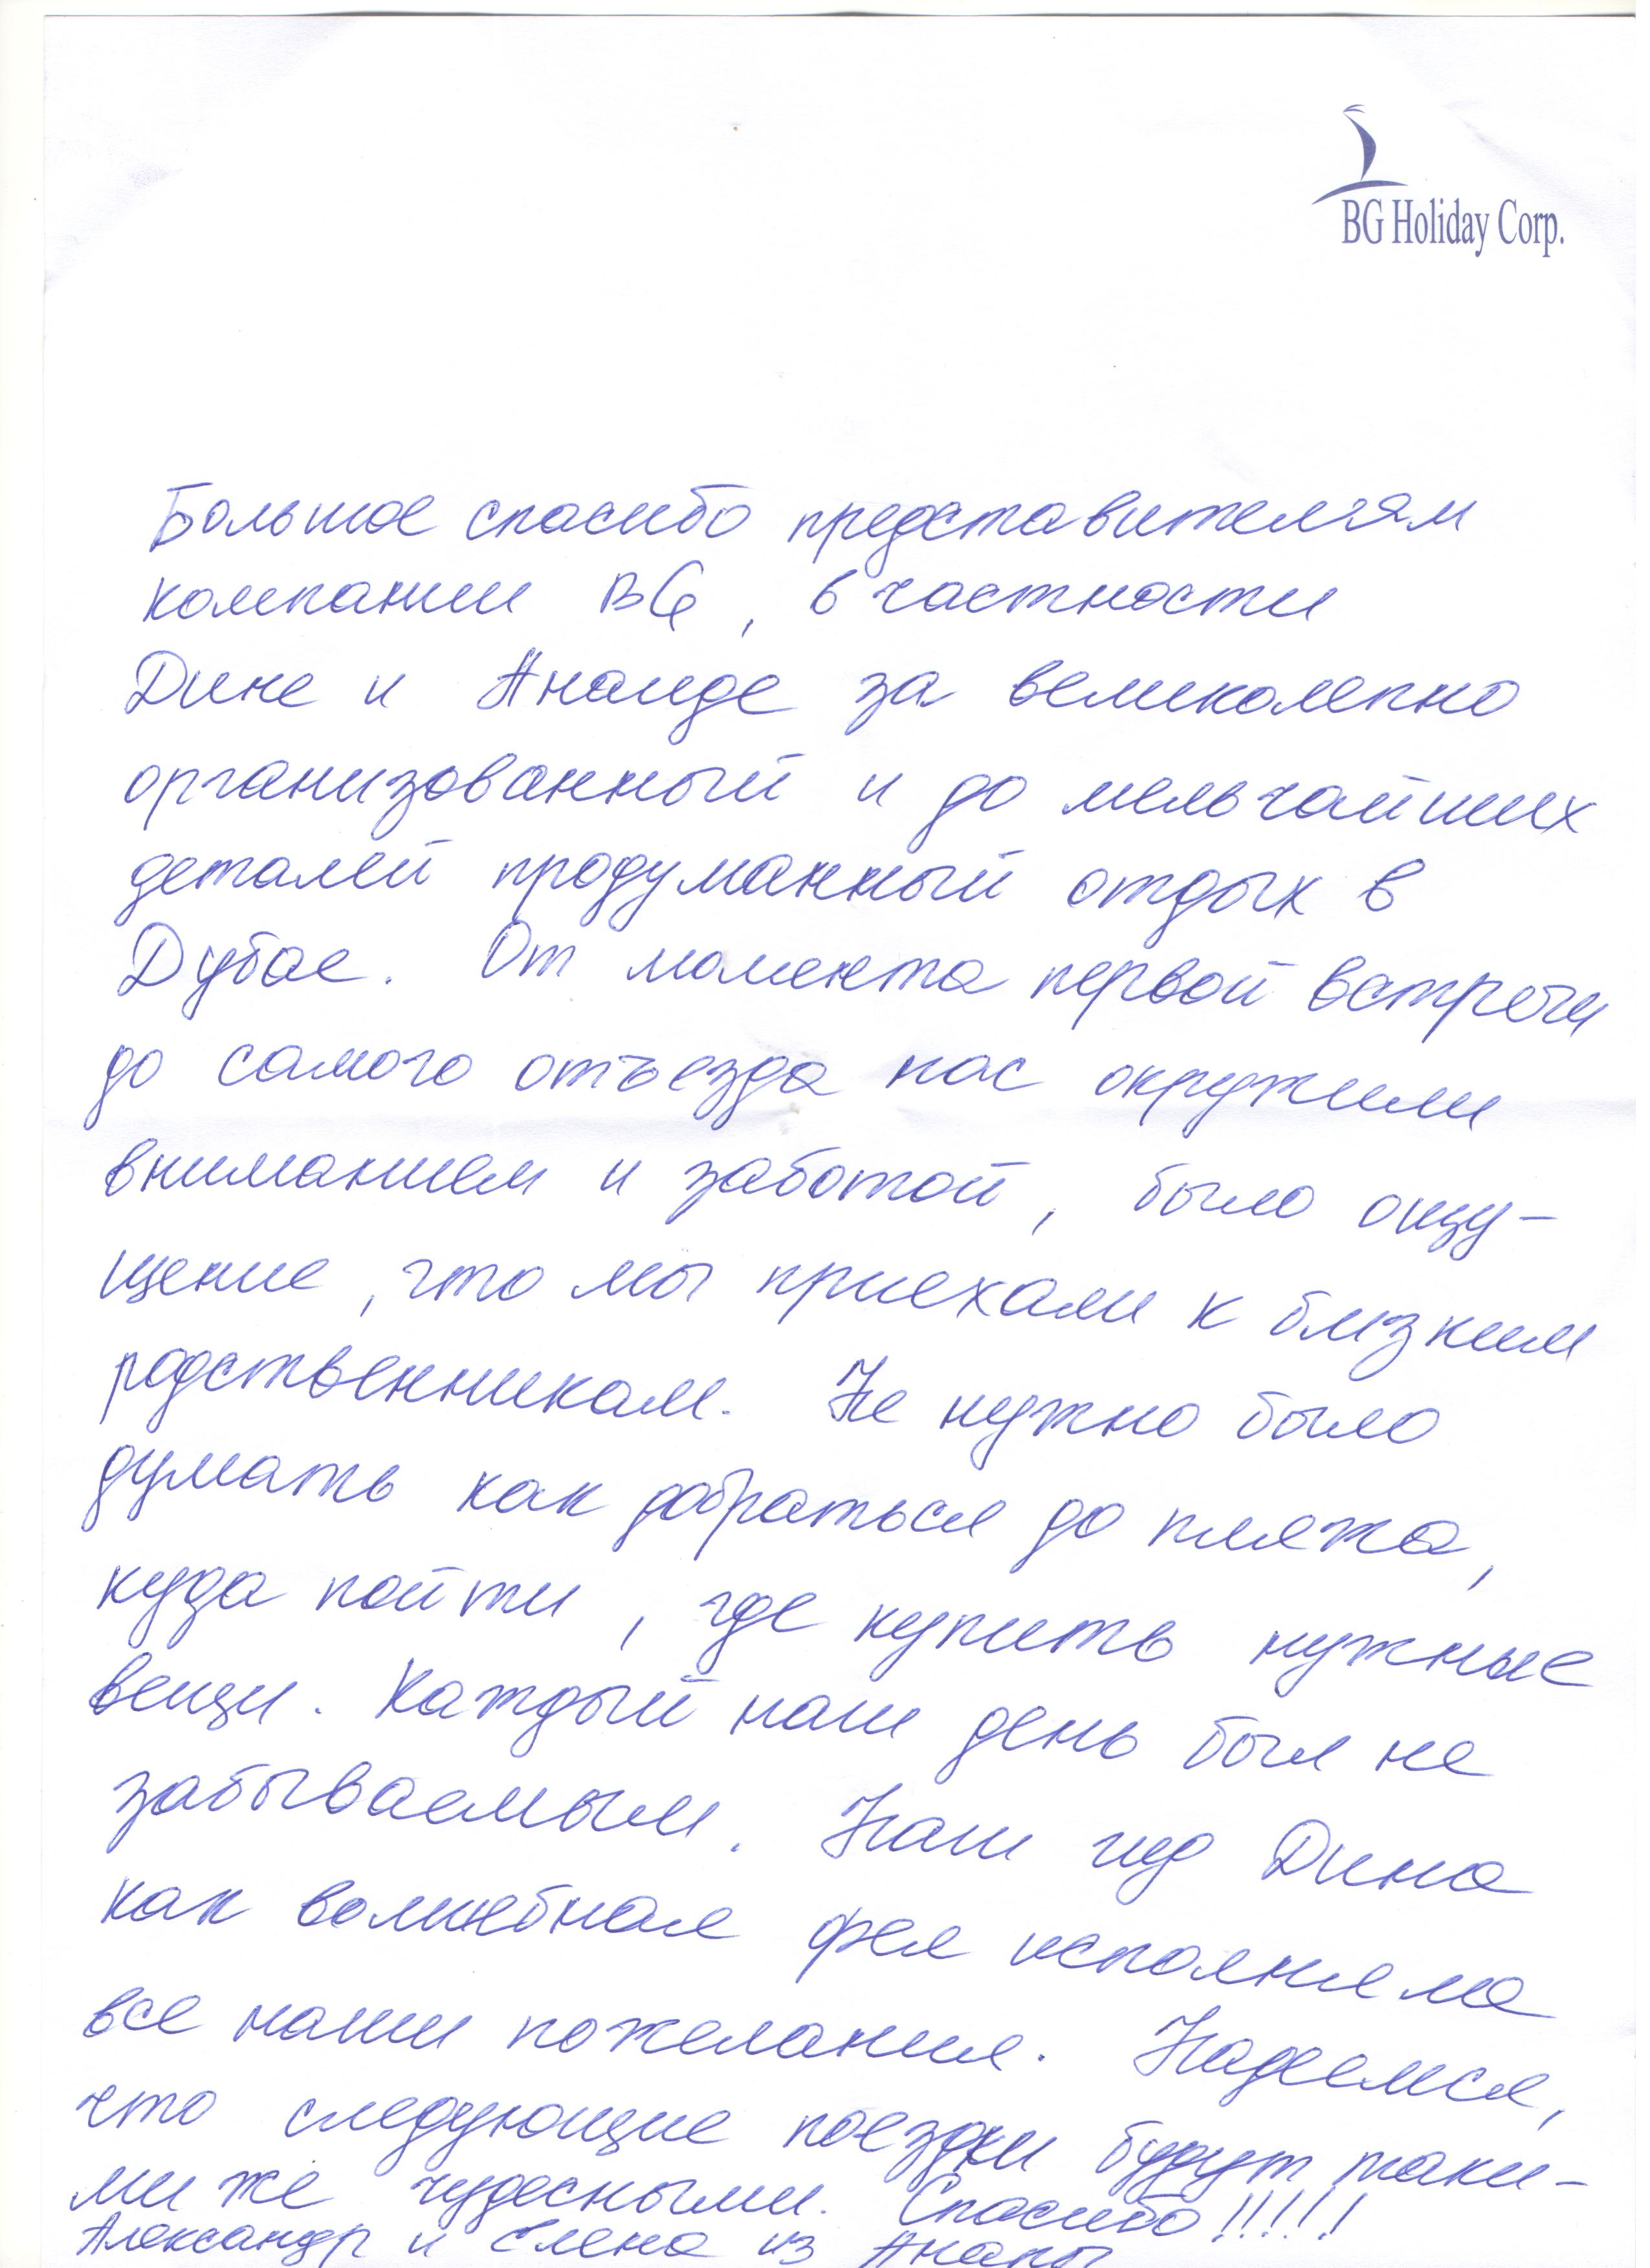 BG Holiday Corp.
Большое спасибо представителям
компании BG, в частности
Дине и Анаиде за великолепно
организованный и до мельчайших
деталей продуманный отдых в
Дубае. От момента первой встречи
до самого отъезда нас окружили
вниманием и заботой, было ощу-
щение, что мы приехали к близким
родственникам. Не нужно было
думать как добраться до пляжа,
куда пойти, где купить нужные
вещи. Каждый наш день был не
забываемым. Наш гид Дина
как волшебная фея исполняла
все наши пожелания. Надеемся,
что следующие поездки будут таки-
ми же чудесными. Спасибо!!!!!
Александр и Елена из Анапы